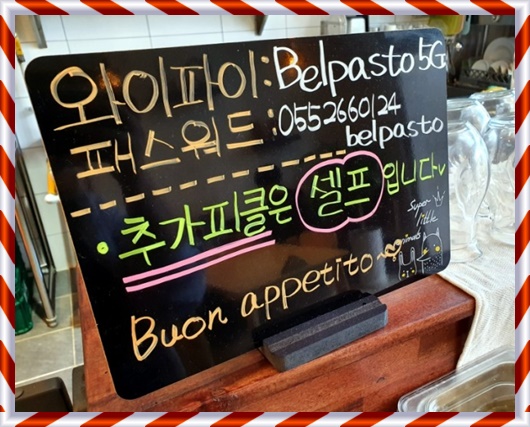 와이파이:Belpasto5G
패스워드:0552660124
belpasto
• 추가피클은 셀프 입니다
Super
little
Buon appetito~